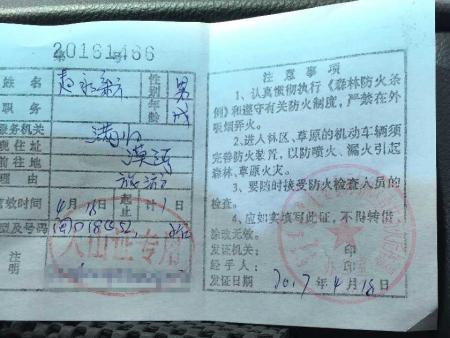 20161466
号
姓名
性别 男
职务
年龄 成
服务机关 满归
现住址
前往地 漠河
理由 旅游
有效时间 4月18 起止 计1日
型及号码
注明
入山证专用
注意事项
1、认真惯彻执行《森林防火条
例》和遵守有关防火制度，严禁在外
吸烟弄火。
2、进入林区、草原的机动车辆须
完善防火装置，以防喷火、漏火引起
森林、草原火灾。
3、要随时接受防火检查人员的
检查。
4、应如实填写此证，不得转借
涂改无效。
发证机关： 印
经手人： 印
发证日期 2017年4月18日